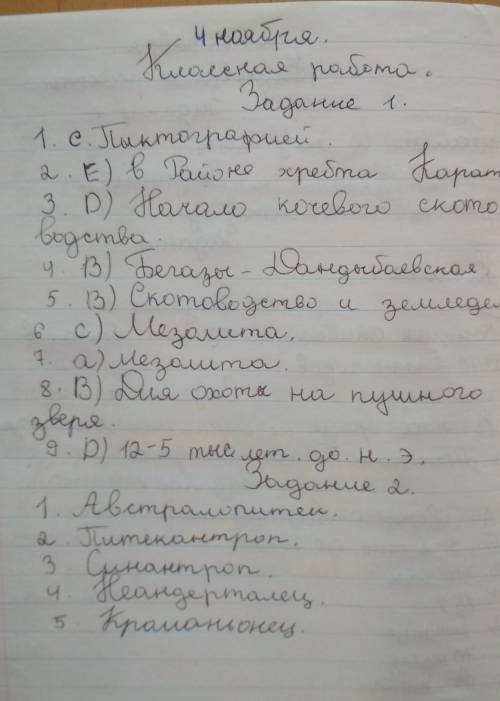 4 ноября.
Классная работа.
Задание 1.
1. с. Пиктографией.
2. Е) в Районе хребта Карат
3. D) Начало кочевого ското
водства.
4. В) Бегазы-Дандыбаевская
5. В) Скотоводство и земледел
6 с) Мезолита.
7. а) Мезолита.
8. В) Для охоты на пушного
зверя.
9. D) 12-5 тыс лет. до. н. э.
Задание 2.
1. Австралопитек.
2. Питекантроп.
3 Синантроп.
4. Неандерталец.
5 Кроманьонец.